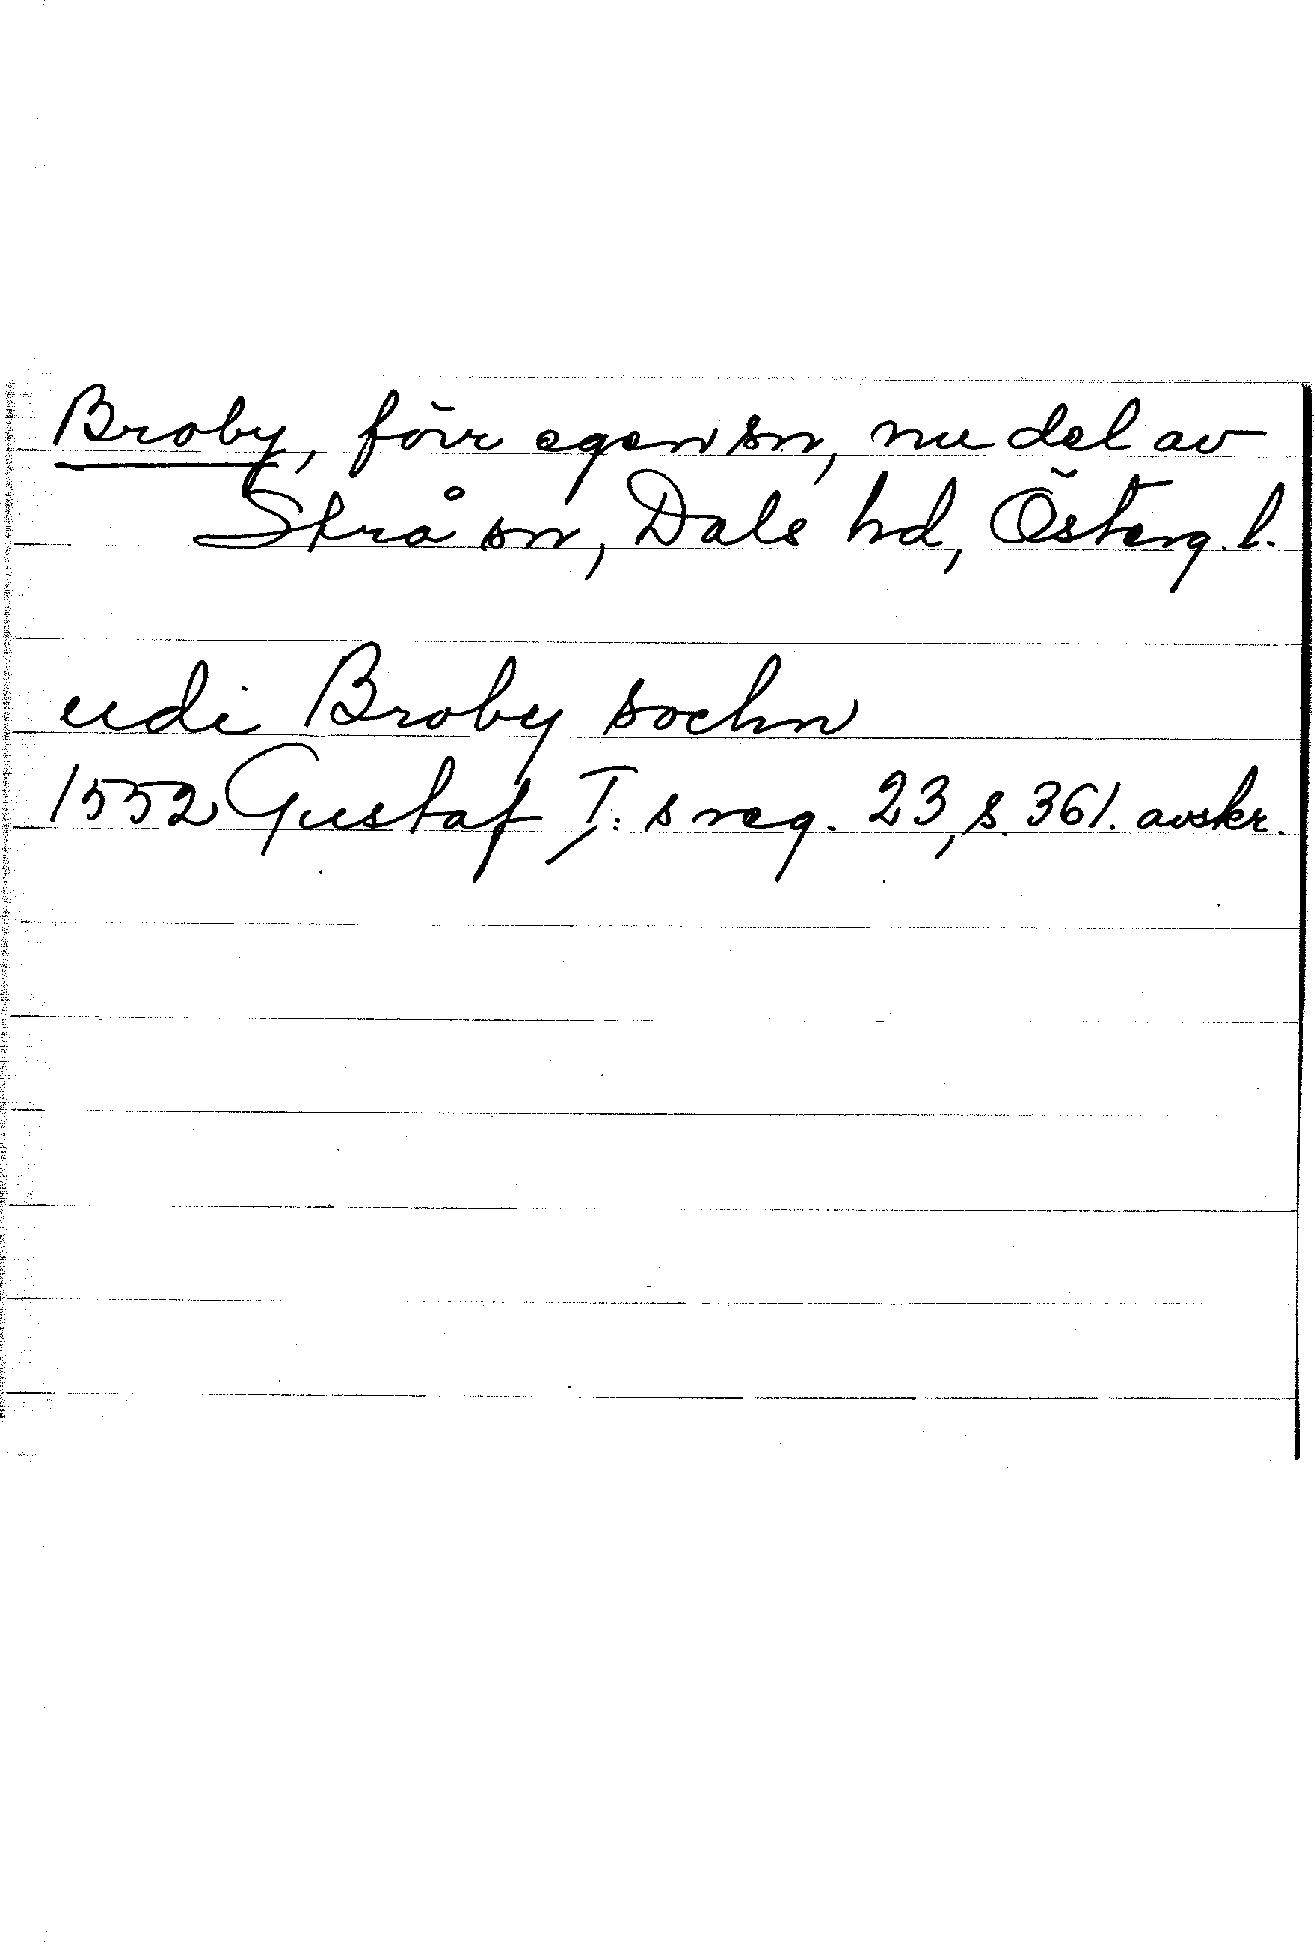 Broby, förr egen sn, nu del av
Strå sn, Dals hd, Österg. l.
udi Broby sochn
1552 Gustaf I:s reg. 23, s. 361. avskr.